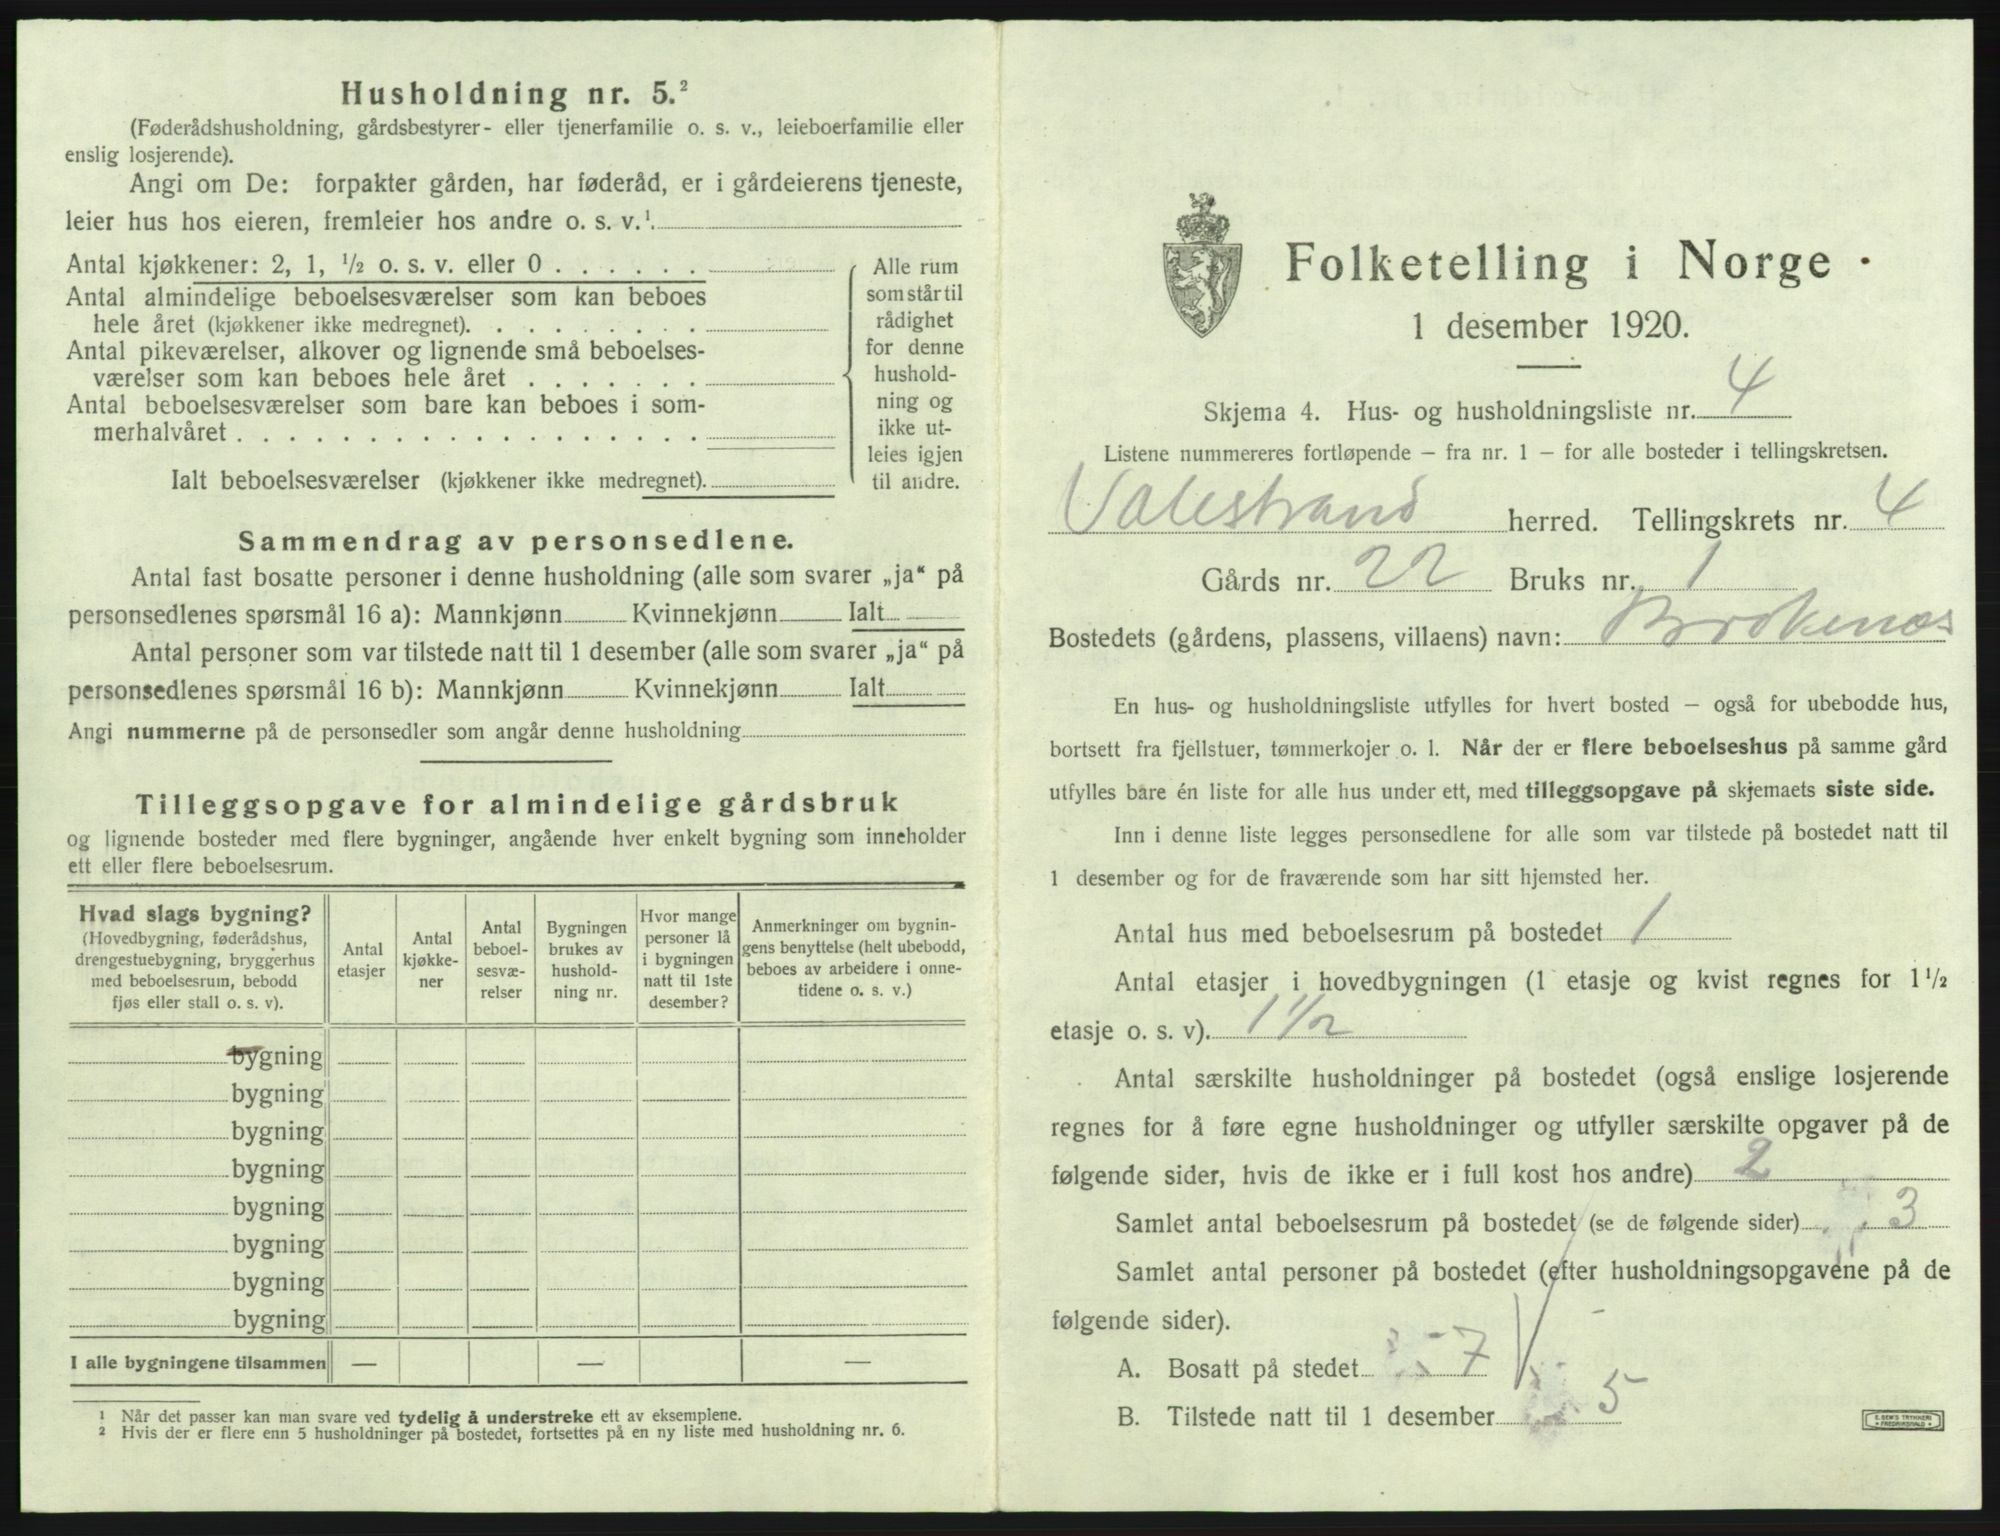 Husholdning nr. 5.²
(Føderådshusholdning, gårdsbestyrer- eller tjenerfamilie o. s. v., leieboerfamilie eller
enslig losjerende).
Angi om De: forpakter gården, har føderåd, er i gårdeierens tjeneste,
leier hus hos eieren, fremleier hos andre o. s. v.¹.
Antal kjøkkener: 2, 1, ½ o. s. v. eller 0 . . . . . .
Antal almindelige beboelsesværelser som kan beboes
hele året (kjøkkener ikke medregnet). . . . . . . . .
Antal pikeværelser, alkover og lignende små beboelses-
værelser som kan beboes hele året . . . . . . .
Antal beboelsesværelser som bare kan beboes i som-
merhalvåret . . . . . . . . . . . . . . . . . .
Ialt beboelsesværelser (kjøkkener ikke medregnet).
Alle rum
som står til
rådighet
for denne
hushold-
ning og
ikke ut-
leies igjen
til andre.
Sammendrag av personsedlene.
Antal fast bosatte personer i denne husholdning (alle som svarer „ja“ på
personsedlenes spørsmål 16 a): Mannkjønn Kvinnekjønn Ialt
Antal personer som var tilstede natt til 1 desember (alle som svarer „ja“ på
personsedlenes spørsmål 16 b): Mannkjønn Kvinnekjønn Ialt
Angi nummerne på de personsedler som angår denne husholdning
Tilleggsopgave for almindelige gårdsbruk
og lignende bosteder med flere bygninger, angående hver enkelt bygning som inneholder
ett eller flere beboelsesrum.
Hvad slags bygning?
(Hovedbygning, føderådshus,
drengestuebygning, bryggerhus
med beboelsesrum, bebodd
fjøs eller stall o. s. v).
Antal
etasjer
Antal
kjøkke-
ner
Antal
beboel-
sesvæ-
relser
Bygningen
brukes av
hushold-
ning nr.
Hvor mange
personer lå
i bygningen
natt til 1ste
desember?
Anmerkninger om bygnin-
gens benyttelse (helt ubebodd,
beboes av arbeidere i onne-
tidene o. s. v.)
bygning
bygning
bygning
bygning
bygning
bygning
bygning
bygning
I alle bygningene tilsammen — — —
¹ Når det passer kan man svare ved tydelig å understreke ett av eksemplene.
² Hvis der er flere enn 5 husholdninger på bostedet, fortsettes på en ny liste med husholdning nr. 6.
Folketelling i Norge
1 desember 1920.
Skjema 4. Hus- og husholdningsliste nr. 4
Listene nummereres fortløpende — fra nr. 1 — for alle bosteder i tellingskretsen.
Valestrand herred. Tellingskrets nr. 4
Gårds nr. 22 Bruks nr. 1
Bostedets (gårdens, plassens, villaens) navn: Brokenes
En hus- og husholdningsliste utfylles for hvert bosted — også for ubebodde hus,
bortsett fra fjellstuer, tømmerkojer o. l. Når der er flere beboelseshus på samme gård
utfylles bare én liste for alle hus under ett, med tilleggsopgave på skjemaets siste side.
Inn i denne liste legges personsedlene for alle som var tilstede på bostedet natt til
1 desember og for de fraværende som har sitt hjemsted her.
Antal hus med beboelsesrum på bostedet 1
Antal etasjer i hovedbygningen (1 etasje og kvist regnes for 1½
etasje o. s. v). 1 1/2
Antal særskilte husholdninger på bostedet (også enslige losjerende
regnes for å føre egne husholdninger og utfyller særskilte opgaver på de
følgende sider, hvis de ikke er i full kost hos andre) 2
Samlet antal beboelsesrum på bostedet (se de følgende sider) 3
Samlet antal personer på bostedet (efter husholdningsopgavene på de
følgende sider).
A. Bosatt på stedet 7
B. Tilstede natt til 1 desember 5
E. SEM'S TRYKKERI
FREDRIKSHALD